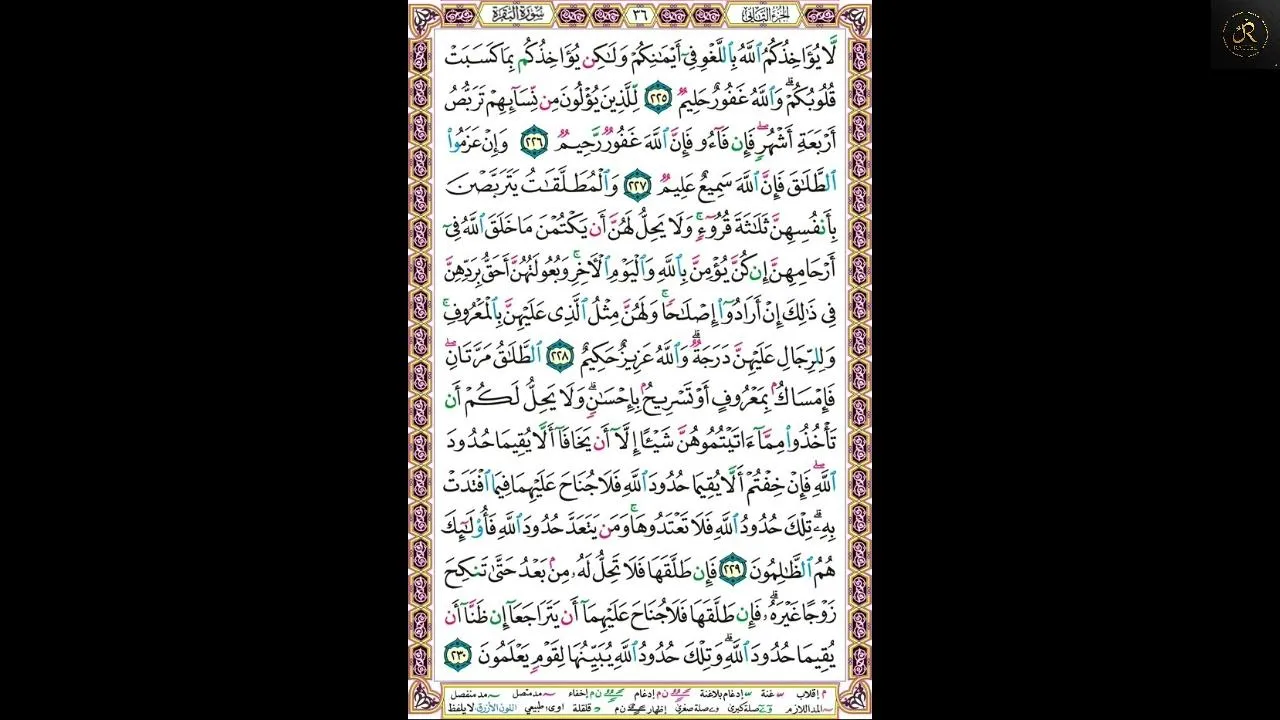 الجزء الثاني
٣٦
سورة البقرة
لَّا يُؤَاخِذُكُمُ ٱللَّهُ بِٱللَّغْوِ فِىٓ أَيْمَـٰنِكُمْ وَلَـٰكِن يُؤَاخِذُكُم بِمَا كَسَبَتْ
قُلُوبُكُمْ ۗ وَٱللَّهُ غَفُورٌ حَلِيمٌ ٢٢٥ لِّلَّذِينَ يُؤْلُونَ مِن نِّسَآئِهِمْ تَرَبُّصُ
أَرْبَعَةِ أَشْهُرٍ ۖ فَإِن فَآءُو فَإِنَّ ٱللَّهَ غَفُورٌ رَّحِيمٌ ٢٢٦ وَإِنْ عَزَمُوا۟
ٱلطَّلَـٰقَ فَإِنَّ ٱللَّهَ سَمِيعٌ عَلِيمٌ ٢٢٧ وَٱلْمُطَلَّقَـٰتُ يَتَرَبَّصْنَ
بِأَنفُسِهِنَّ ثَلَـٰثَةَ قُرُوٓءٍ ۚ وَلَا يَحِلُّ لَهُنَّ أَن يَكْتُمْنَ مَا خَلَقَ ٱللَّهُ فِىٓ
أَرْحَامِهِنَّ إِن كُنَّ يُؤْمِنَّ بِٱللَّهِ وَٱلْيَوْمِ ٱلْـَٔاخِرِ ۚ وَبُعُولَتُهُنَّ أَحَقُّ بِرَدِّهِنَّ
فِى ذَٰلِكَ إِنْ أَرَادُوٓا۟ إِصْلَـٰحًا ۚ وَلَهُنَّ مِثْلُ ٱلَّذِى عَلَيْهِنَّ بِٱلْمَعْرُوفِ ۚ
وَلِلرِّجَالِ عَلَيْهِنَّ دَرَجَةٌ ۗ وَٱللَّهُ عَزِيزٌ حَكِيمٌ ٢٢٨ ٱلطَّلَـٰقُ مَرَّتَانِ ۖ
فَإِمْسَاكٌۢ بِمَعْرُوفٍ أَوْ تَسْرِيحٌۢ بِإِحْسَـٰنٍ ۗ وَلَا يَحِلُّ لَكُمْ أَن
تَأْخُذُوا۟ مِمَّآ ءَاتَيْتُمُوهُنَّ شَيْـًٔا إِلَّآ أَن يَخَافَآ أَلَّا يُقِيمَا حُدُودَ
ٱللَّهِ ۖ فَإِنْ خِفْتُمْ أَلَّا يُقِيمَا حُدُودَ ٱللَّهِ فَلَا جُنَاحَ عَلَيْهِمَا فِيمَا ٱفْتَدَتْ
بِهِۦ ۗ تِلْكَ حُدُودُ ٱللَّهِ فَلَا تَعْتَدُوهَا ۚ وَمَن يَتَعَدَّ حُدُودَ ٱللَّهِ فَأُو۟لَـٰٓئِكَ
هُمُ ٱلظَّـٰلِمُونَ ٢٢٩ فَإِن طَلَّقَهَا فَلَا تَحِلُّ لَهُۥ مِنۢ بَعْدُ حَتَّىٰ تَنكِحَ
زَوْجًا غَيْرَهُۥ ۗ فَإِن طَلَّقَهَا فَلَا جُنَاحَ عَلَيْهِمَآ أَن يَتَرَاجَعَآ إِن ظَنَّآ أَن
يُقِيمَا حُدُودَ ٱللَّهِ ۗ وَتِلْكَ حُدُودُ ٱللَّهِ يُبَيِّنُهَا لِقَوْمٍ يَعْلَمُونَ ٢٣٠
م إقلاب غنة إدغام بلاغنة ن م إدغام ن م إخفاء مد متصل مد منفصل
المد اللازم صلة كبرى صلة صغرى إظهار ن م قلقلة اوى طبيعي اللون الأزرق لا يلفظ